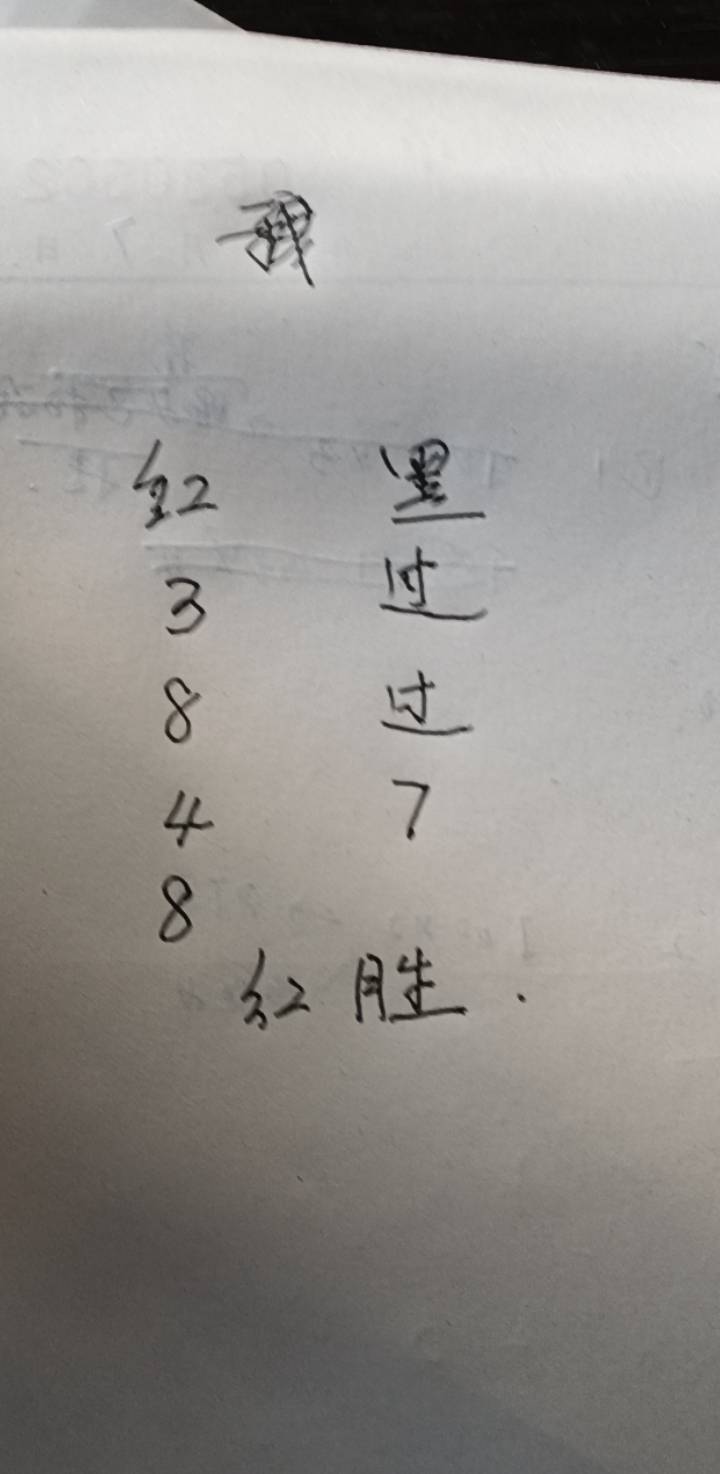 红 黑
3 过
8 过
4 7
8
红胜.